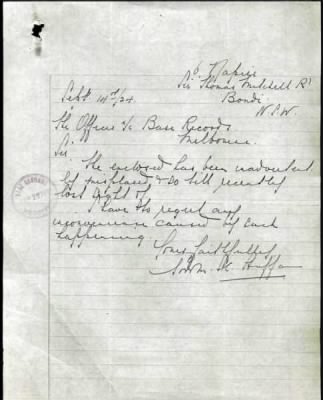 "Napier"
Sir Thomas Mitchell Rd
Bondi
N.S.W.
Sept 14th/24.
The Officer i/c Base Records
Melbourne.
Sir.
The enclosed has been inadvertent
ly misplaced & so till recently
lost sight of.
I have to regret any
inconvenience caused by such
happening.
Yours faithfully